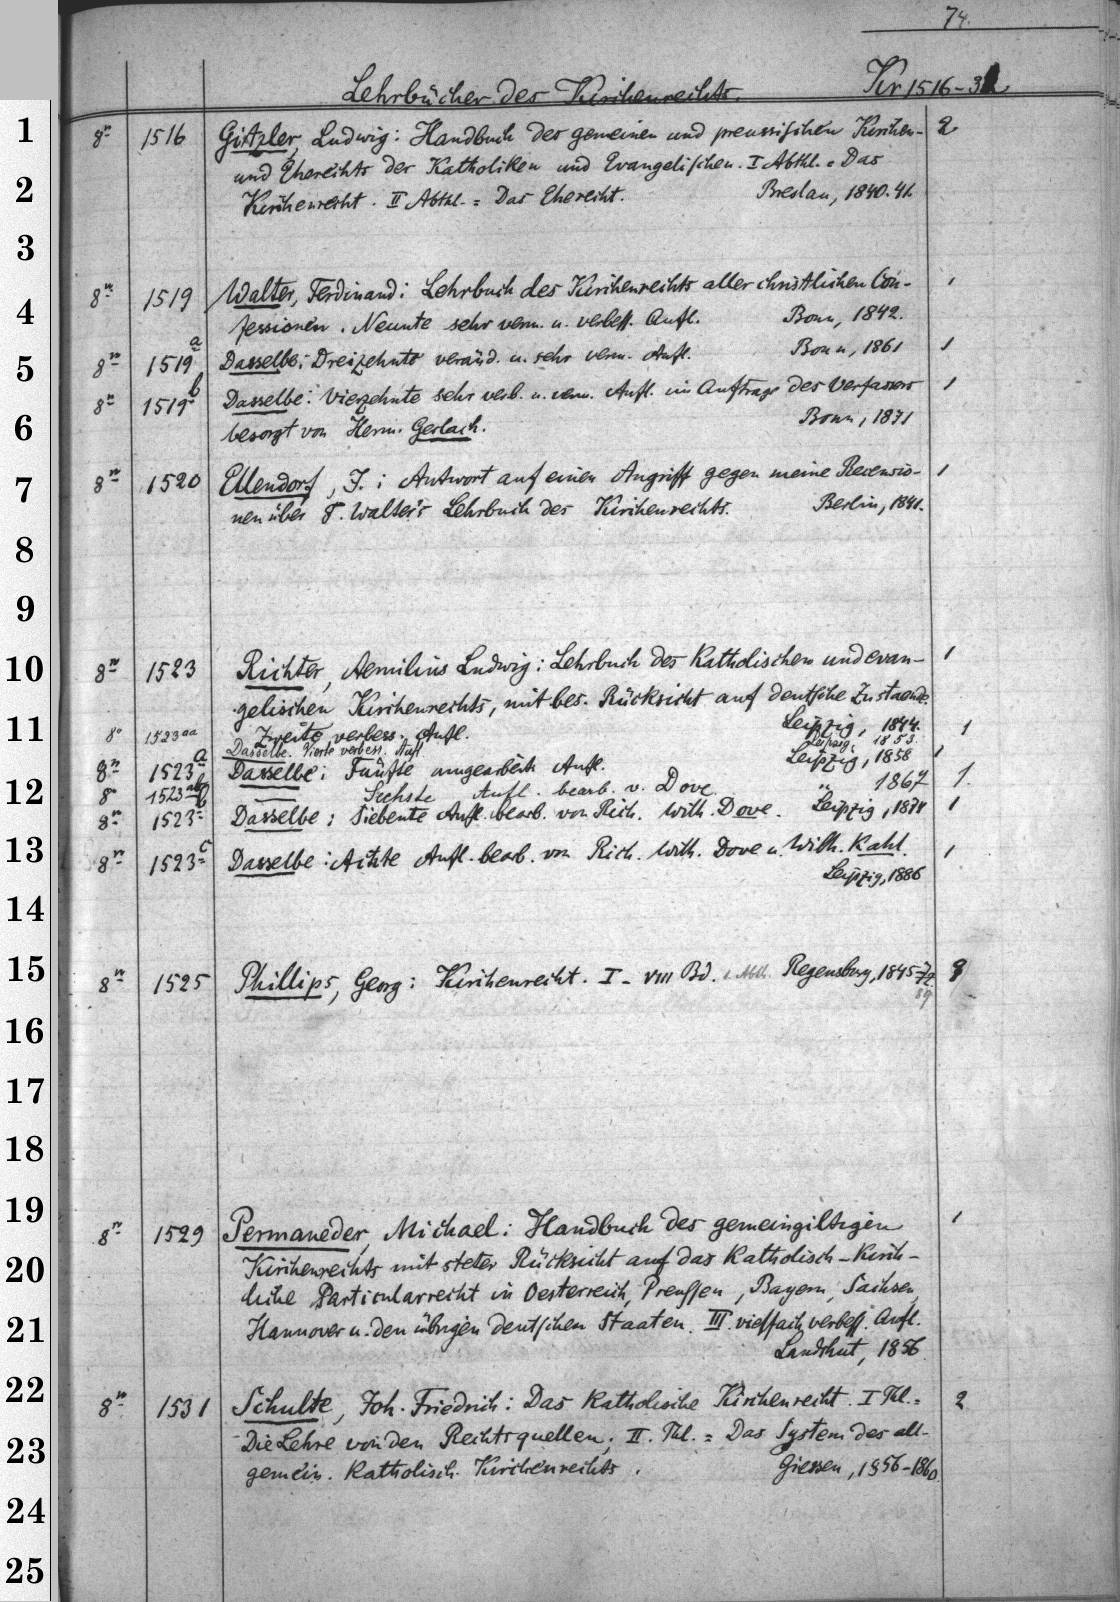 74.
Lehrbücher des Kirchenrechts. Kr 1516-32
1
8° 1516 Gitzler, Ludwig: Handbuch des gemeinen und preussischen Kirchen- 2
und Eherechts der Katholiken und Evangelischen. I Abthl. = Das
2
Kirchenrecht. II Abthl. = Das Eherecht. Breslau, 1840.41.
3
8° 1519 Walter, Ferdinand: Lehrbuch des Kirchenrechts aller christlichen Con- 1
4
fessionen. Neunte sehr verm. u. verbess. Aufl. Bonn, 1842.
5
8° 1519a Dasselbe: Dreizehnte veränd. u. sehr verm. Aufl. Bonn, 1861 1
8° 1519b Dasselbe: Vierzehnte sehr verb. u. verm. Aufl. im Auftrage des Verfassers 1
6
besorgt von Herm. Gerlach. Bonn, 1871
7
8° 1520 Ellendorf, J.: Antwort auf einen Angriff gegen meine Recensio- 1
nen über F. Walter's Lehrbuch des Kirchenrechts. Berlin, 1841.
8
9
10
8° 1523 Richter, Aemilius Ludwig: Lehrbuch des katholischen und evan- 1
gelischen Kirchenrechts, mit bes. Rücksicht auf deutsche Zustaende.
11
Zweite verbess. Aufl. Leipzig, 1844.
8° 1523aa Dasselbe. Vierte verbess. Aufl. Leipzig, 1853. 1
8° 1523a Dasselbe: Fünfte umgearbeit. Aufl. Leipzig, 1858 1
12
8° 1523ab Sechste Aufl. bearb. v. Dove. " 1867 1.
8° 1523b Dasselbe: Siebente Aufl. bearb. von Rich. Wilh. Dove. Leipzig, 1874 1
13
8° 1523c Dasselbe: Achte Aufl. bearb. von Rich. Wilh. Dove u. Wilh. Kahl. 1
Leipzig, 1886
14
15
8° 1525 Phillips, Georg: Kirchenrecht. I - VIII Bd. 1. Abth. Regensburg, 1845-72. 8
89
16
17
18
19
8° 1529 Permaneder, Michael: Handbuch des gemeingiltigen 1
20
Kirchenrechts mit steter Rücksicht auf das Katholisch-Kirch-
liche Particularrecht in Oesterreich, Preussen, Bayern, Sachsen,
21
Hannover u. den übrigen deutschen Staaten. III. vielfach verbess. Aufl.
Landshut, 1856.
22
8° 1531 Schulte, Joh. Friedrich: Das katholische Kirchenrecht. I Thl. = 2
23
Die Lehre von den Rechtsquellen; II. Thl. = Das System des all-
gemein. Katholisch. Kirchenrechts. Giessen, 1856-1860.
24
25